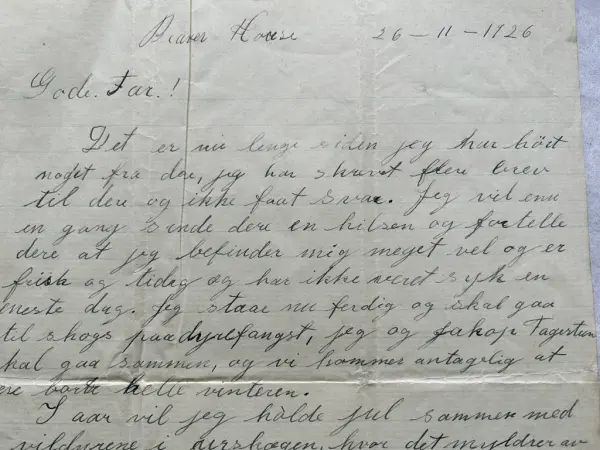 Beaver House 26-11-1926
Gode. Far.!
Det er nu lenge siden jeg har hört
noget fra dere, jeg har skrevet flere brev
til dere og ikke faat svar. Jeg vil enn
en gang sende dere en hilsen og fortelle
dere at jeg befinder mig meget vel og er
frisk og tidag og har ikke veret syk en
eneste dag. Jeg staar nu ferdig og skal gaa
til skogs paa dyrefangst, jeg og Jakop
skal gaa sammen, og vi kommer antagelig at
vere borte hele vinteren.
I aar vil jeg holde jul sammen med
vildyrene i urskogen, hvor det myldrer av